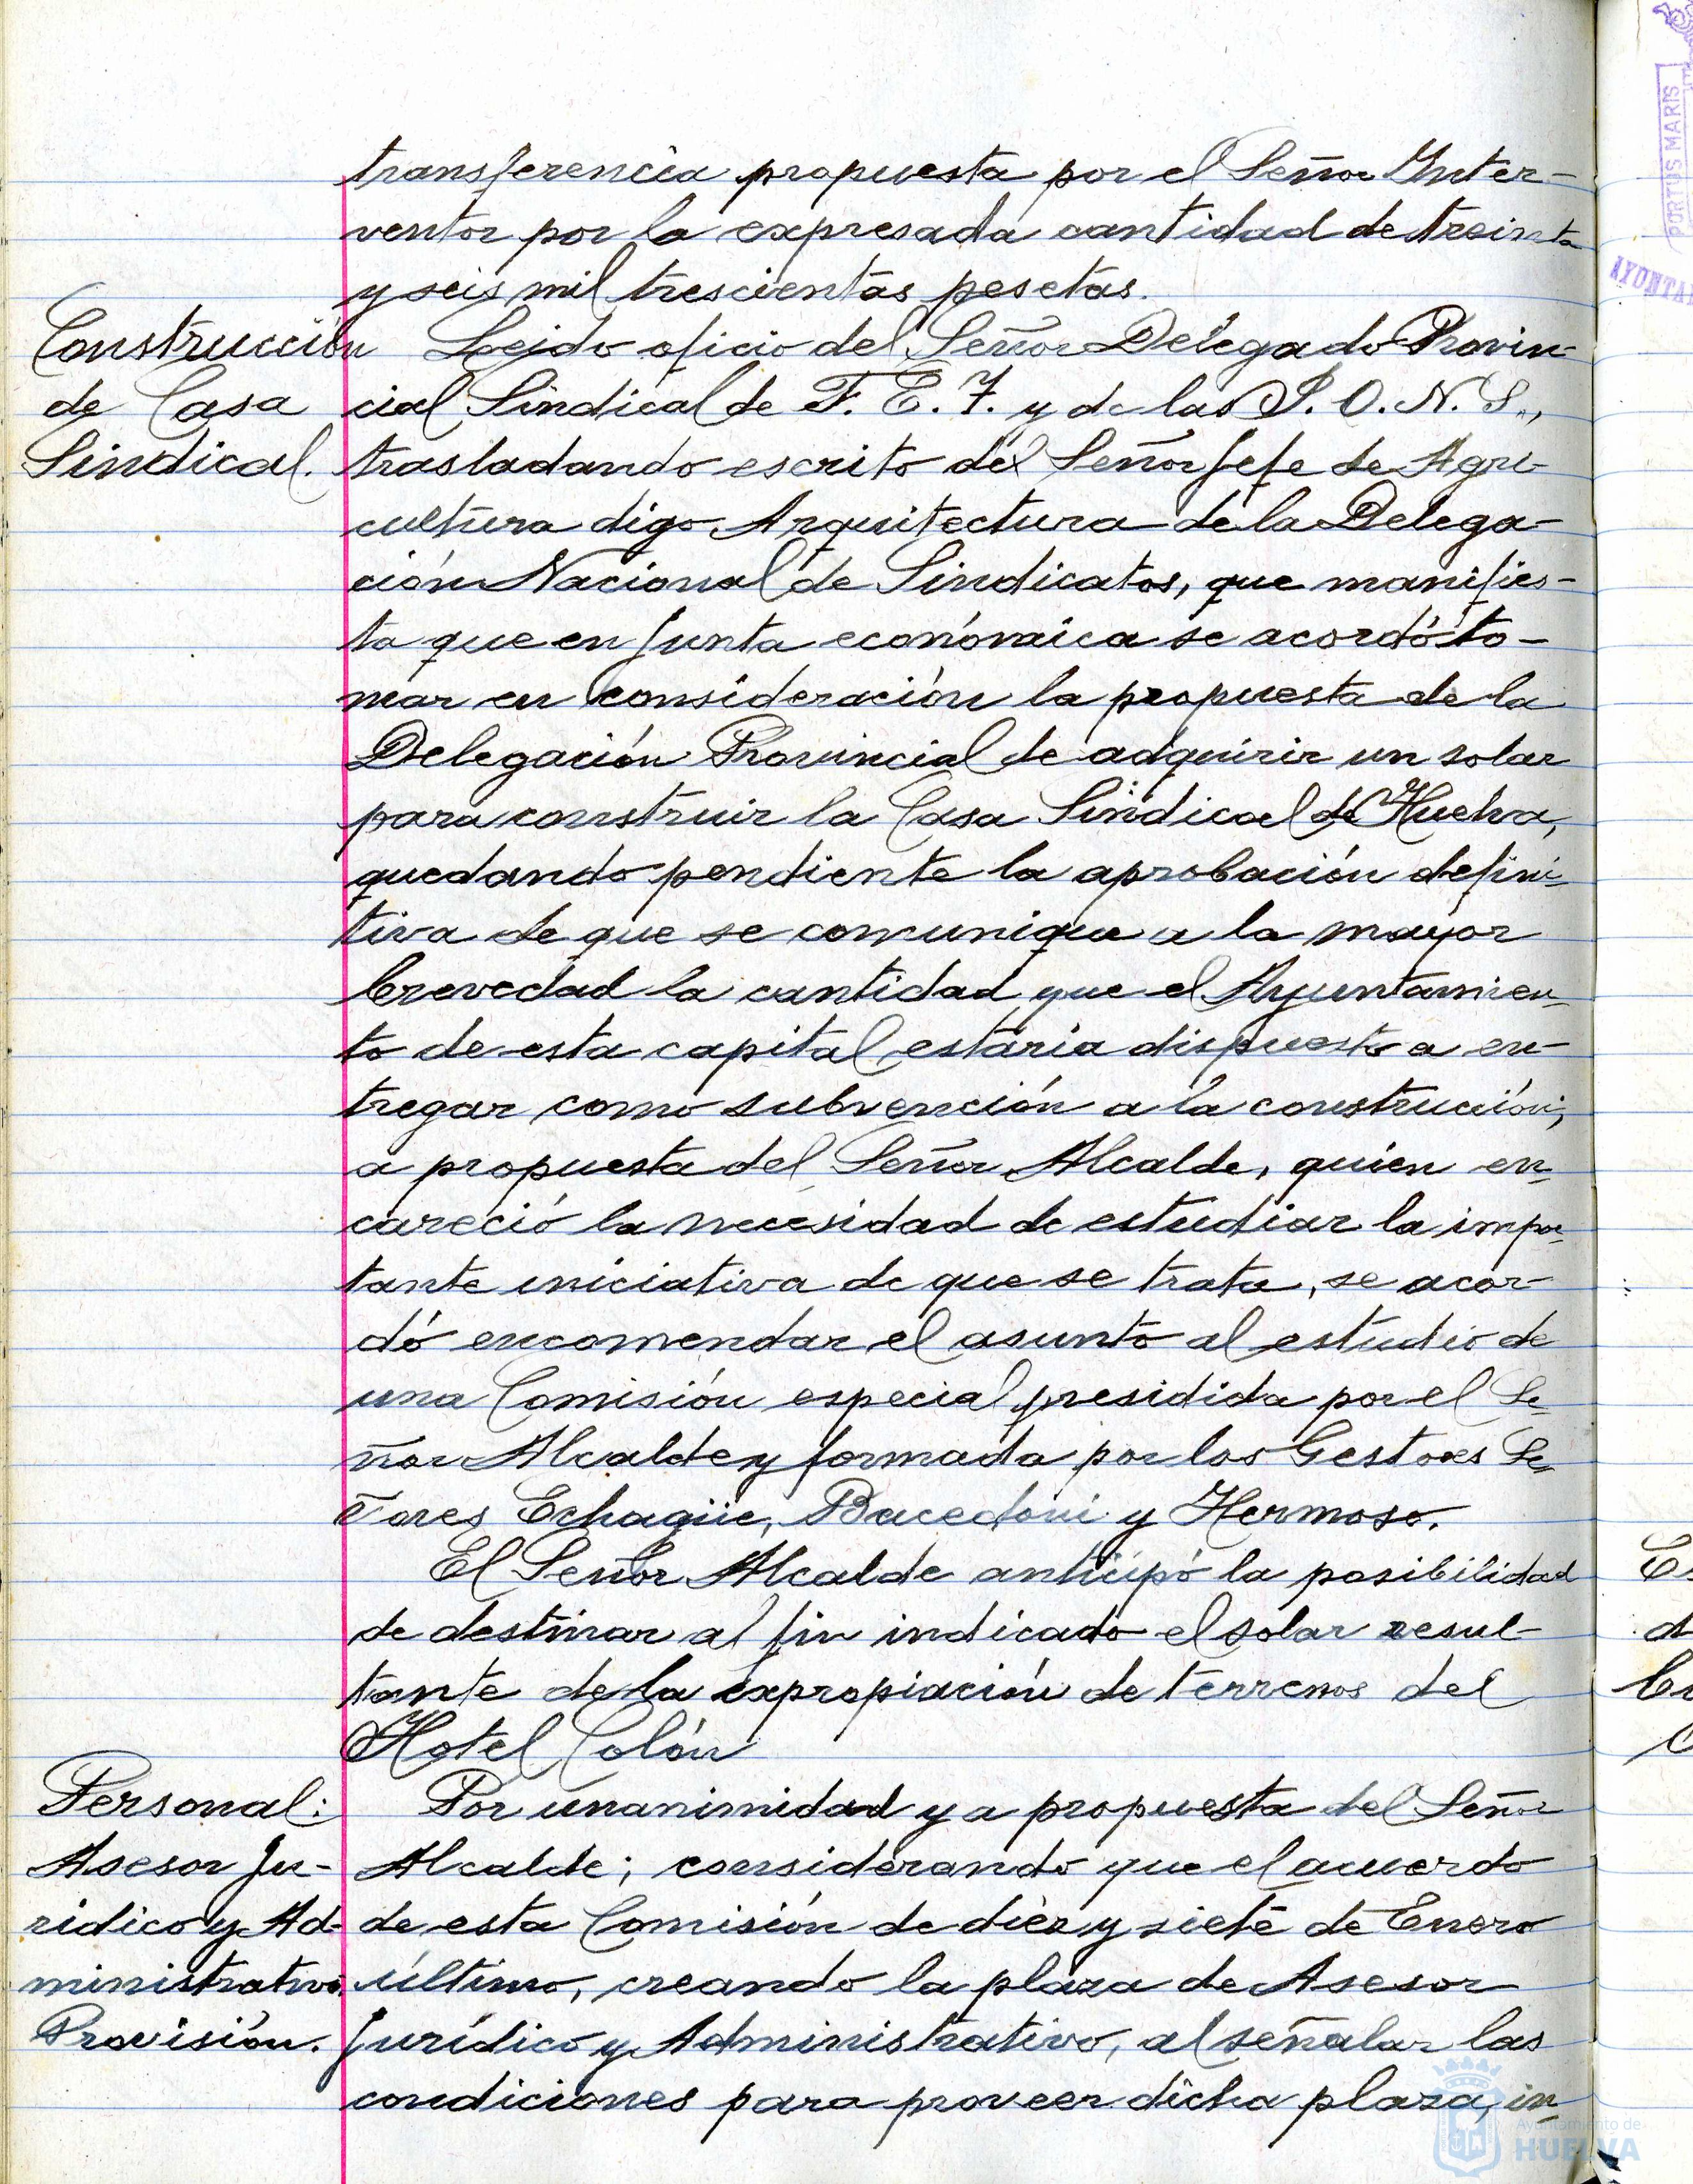 transferencia propuesta por el Señor Inter-
ventor por la expresada cantidad de treinta
y seis mil trescientas pesetas.
Construcción
de Casa
Sindical.
Leido oficio del Señor Delegado Provin-
cial Sindical de F. E. T. y de las J. O. N. S.,
trasladando escrito del Señor Jefe de Agri-
cultura digo Arquitectura de la Delega-
ción Nacional de Sindicatos, que manifies-
ta que en Junta económica se acordó to-
mar en consideración la propuesta de la
Delegación Provincial de adquirir un solar
para construir la Casa Sindical de Huelva,
quedando pendiente la aprobación defini-
tiva de que se comunique a la mayor
brevedad la cantidad que el Ayuntamien-
to de esta capital estaria dispuesto a en-
tregar como subvención a la construcción;
a propuesta del Señor Alcalde, quien en-
careció la necesidad de estudiar la impor-
tante iniciativa de que se trata, se acor-
dó encomendar el asunto al estudio de
una Comisión especial presidida por el Se-
ñor Alcalde y formada por los Gestores Se-
ñores Echagüe, Bacedoni y Hermoso.
El Señor Alcalde anticipó la posibilidad
de destinar al fin indicado el solar resul-
tante de la expropiación de terrenos del
Hotel Colón
Personal:
Asesor Ju-
ridico y Ad-
ministrativo.
Provisión.
Por unanimidad y a propuesta del Señor
Alcalde; considerando que el acuerdo
de esta Comisión de diez y siete de Enero
último, creando la plaza de Asesor
Jurídico y Administrativo, al señalar las
condiciones para proveer dicha plaza, in-
PORTUS MARIS
Ayuntamiento de
HUELVA